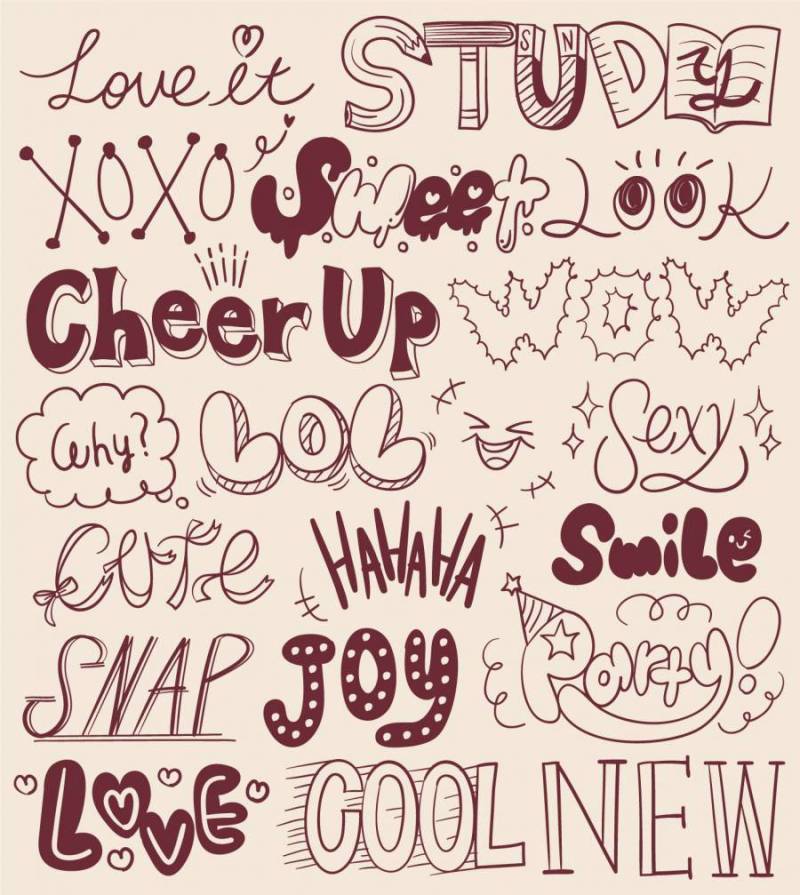 Love it STUDY
XOXO Sweet LOOK
Cheer Up WOW
Why? LOL Sexy
CUTE HAHAHA Smile
SNAP JOY Party!
LOVE COOL NEW